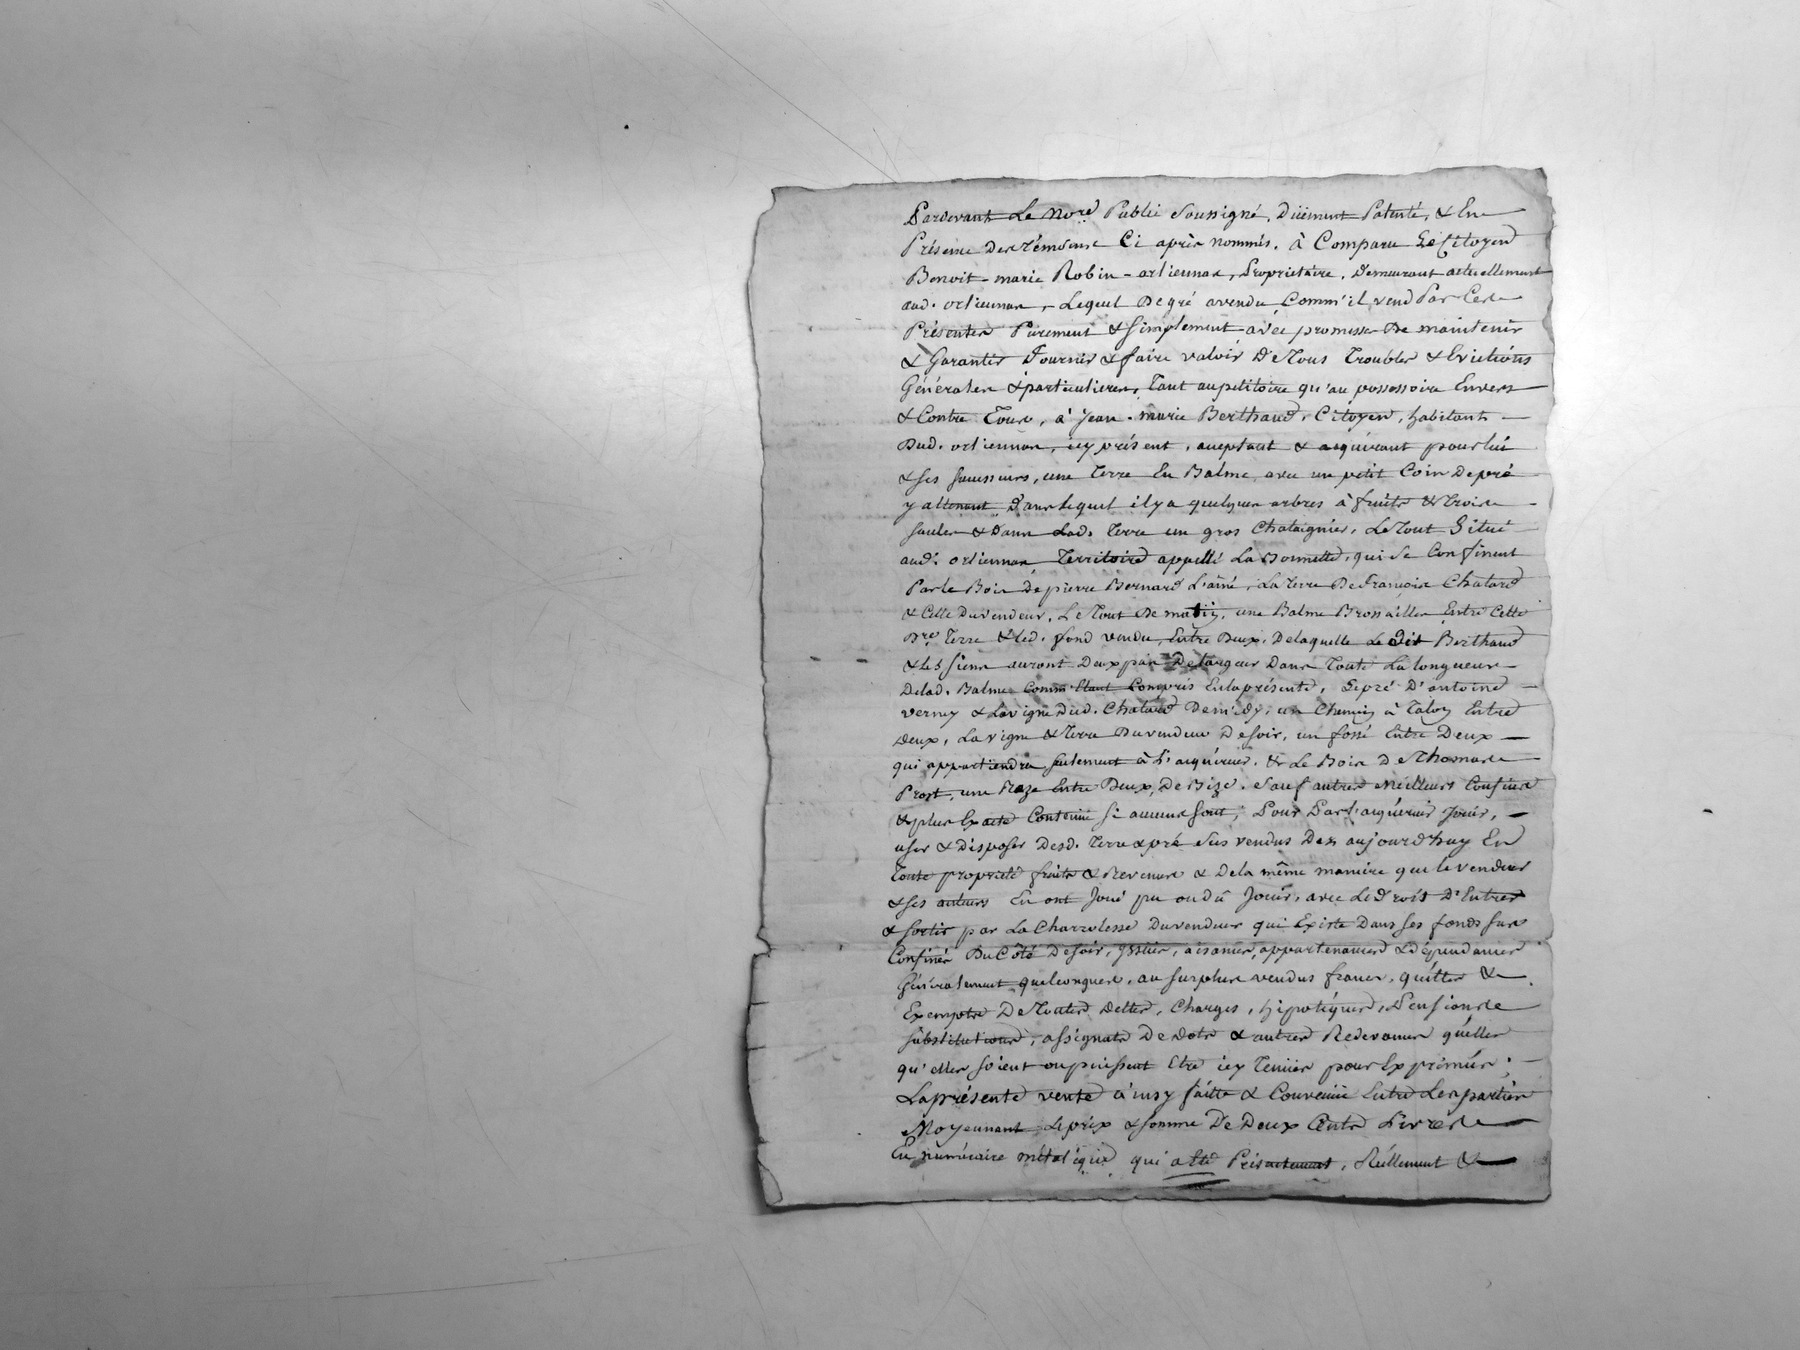 Pardevant Le Nore Public Soussigné, Düement Patenté, & En
Présence des témoins Ci après nommés. à Comparu Le Citoyen
Benoit-marie Robin-orliennas, Proprietaire, Demeurant actuellement
aud. orliennas, Lequel De gré a vendu Comm'il vend Par Ces
Présentes Purement & simplement avec promesse De maintenir
& Garantir Fournir & faire valoir De Tous Troubles & Evictions
Générales & particulieres, Tant au petitoire qu'au possessoire Envers
& Contre Tous, à Jean-marie Berthaud, Citoyen, habitant
Dud. orliennas, icy présent, acceptant & acquérant pour lui
& ses successeurs, une Terre En Balme, avec un petit Coin De pré
y attenant Dans lequel il y a quelques arbres à fruits & Trois
saules & Dans Lad. Terre un gros Chataignier, Le Tout Situé
aud. orliennas Territoire appellé La Bonnette, qui se Confinent
Par le Bois de pierre Bernard L'ainé, La terre De François Chatard
& Celle Du vendeur, Le Tout De matin, une Balme Brossailles Entre Cette
Dre Terre & led. fond vendu Entre Deux, De laquelle Le dit Berthaud
& Les siens auront Deux pas De largeur Dans Toute La longueur
De lad. Balme Comm'étant Compris En la présente, Le pré D'antoine
verney & La vigne Dud. Chatard De midy, un Chemin à Talon Entre
deux, La vigne & Terre Du vendeur De soir, un fossé Entre Deux
qui appartiendra seulement à L'acquéreur, & Le Bois De Thomas
Prost, une Raze Entre Deux, De Bize, Sauf autres Meilleurs Confins
& plus Exacte Contenue si aucuns sont, Pour Par l'acquéreur Jouir,
user & disposer Desd. Terre & pré Sus vendus Dès aujourd'huy En
Toute propriété fruits & Revenus & De la même maniere que le vendeur
& ses auteurs En ont Joui pu ou dû Jouir, avec Le droit D'Entrer
& sortir par La Charrolesse Du vendeur qui Existe Dans ses fonds sus
Confinés Du Côté De soir, issües, aisances, appartenances & Dépendances
Généralement quelconques, au surplus vendus francs, quittes &
Exempts De Toutes dettes, Charges, hipotéques, Pensions
substitutions, assignats De dots & autres Redevances quelles
qu'elles soient ou puissent Etre icy Tenües pour Exprimées;
La présente vente ainsy faitte & Convenüe Entre Les parties
Moyennant Le prix & somme De Deux Cents Livres
En numéraire métalique qui a Eté Présentement, Réellement &